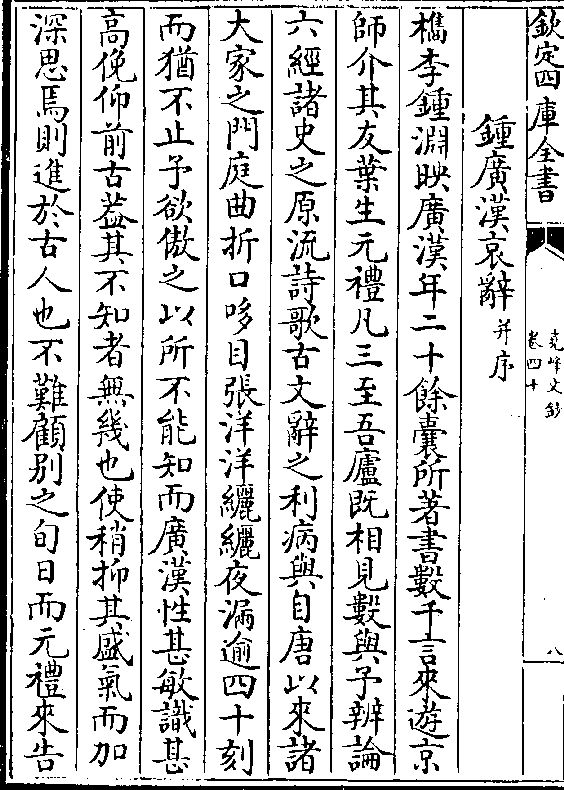 欽定四庫全書
堯峰文鈔
卷四十
八
鍾廣漢哀辭并序
檇李鍾淵映廣漢年二十餘囊所著書數千言來遊京
師介其友葉生元禮凡三至吾廬既相見數與予辨論
六經諸史之原流詩歌古文辭之利病與自唐以來諸
大家之門庭曲折口哆目張洋洋纚纚夜漏逾四十刻
而猶不止予欲傲之以所不能知而廣漢性甚敏識甚
高俛仰前古葢其不知者無幾也使稍抑其盛氣而加
深思焉則進於古人也不難顧别之旬日而元禮來告